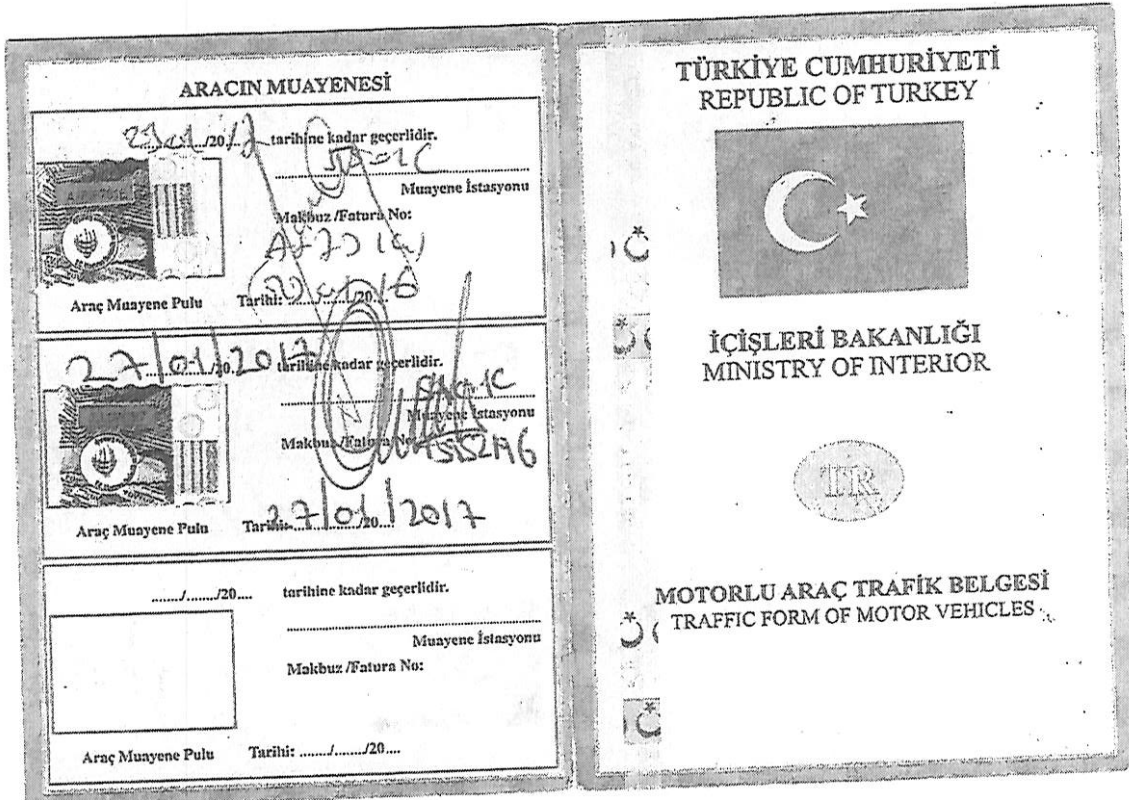 ARACIN MUAYENESİ
/20 tarihine kadar geçerlidir.
Muayene İstasyonu
Makbuz /Fatura No:
Araç Muayene Pulu Tarihi: ......../......../20....
27/01/2017 tarihine kadar geçerlidir.
Muayene İstasyonu
Makbuz /Fatura No:
Araç Muayene Pulu Tarihi: 27/01/2017
......../......../20.... tarihine kadar geçerlidir.
Muayene İstasyonu
Makbuz /Fatura No:
Araç Muayene Pulu Tarihi: ......../......../20....
TÜRKİYE CUMHURİYETİ
REPUBLIC OF TURKEY
İÇİŞLERİ BAKANLIĞI
MINISTRY OF INTERIOR
TR
MOTORLU ARAÇ TRAFİK BELGESİ
TRAFFIC FORM OF MOTOR VEHICLES